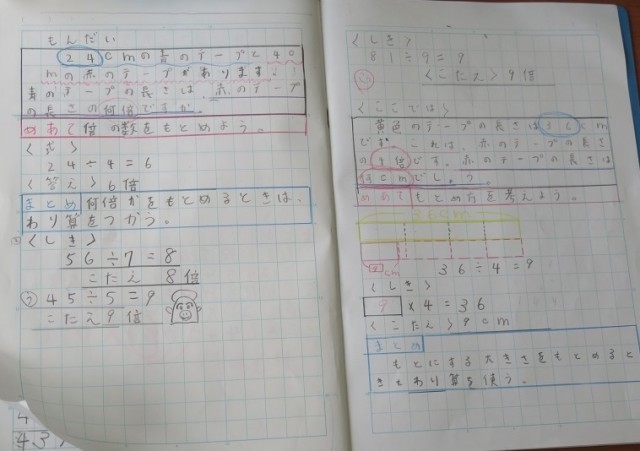 もんだい
24cmの青のテープと40
mの赤のテープがあります。
青のテープの長さは、赤のテープ
の長さの何倍ですか。
めあて倍の数をもとめよう。
<式>
24÷4=6
<答え>6倍
まとめ何倍かをもとめるときは、
わり算をつかう。
<しき>
56÷7=8
こたえ 8倍
45÷5=9
こたえ9倍
<しき>
81÷9=9
<こたえ>9倍
<ここでは>
黄色のテープの長さは36cm
です。これは、赤のテープの長さの
4倍です。赤のテープの長さは
何cmでしょう。
めあてもとめ方を考えよう。
36cm
cm
36÷4=9
<しき>
9×4=36
<こたえ>9cm
まとめ
もとにする大きさをもとめると
きもわり算を使う。